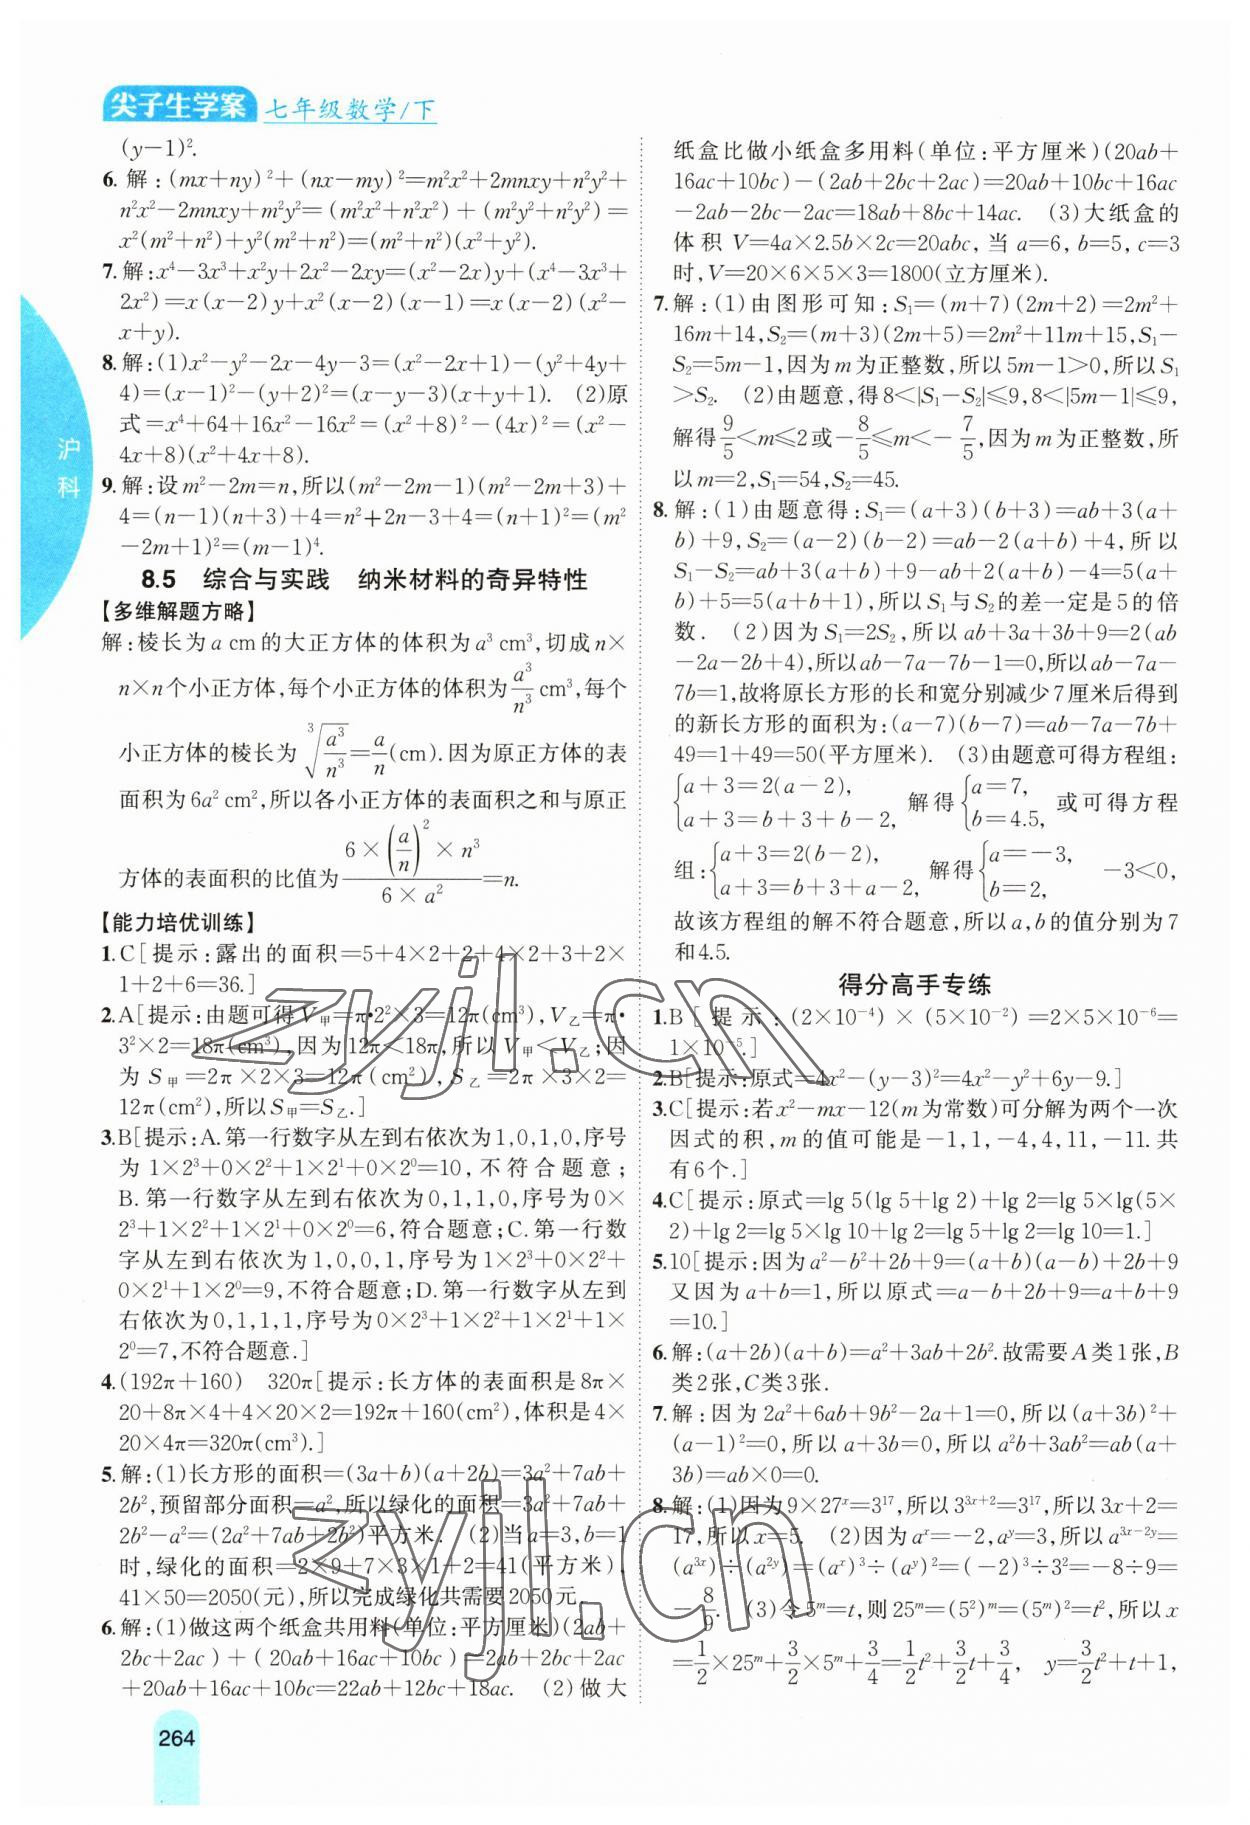 尖子生学案 七年级数学/下
(y－1)².
6. 解：(mx+ny)²+(nx－my)²=m²x²+2mnxy+n²y²+
n²x²－2mnxy+m²y²=(m²x²+n²x²)+(m²y²+n²y²)=
x²(m²+n²)+y²(m²+n²)=(m²+n²)(x²+y²).
7. 解：x⁴－3x³+x²y+2x²－2xy=(x²－2x)y+(x⁴－3x³+
2x²)=x(x－2)y+x²(x－2)(x－1)=x(x－2)(x²－
x+y).
8. 解：(1)x²－y²－2x－4y－3=(x²－2x+1)－(y²+4y+
4)=(x－1)²－(y+2)²=(x－y－3)(x+y+1). (2)原
式=x⁴+64+16x²－16x²=(x²+8)²－(4x)²=(x²－
4x+8)(x²+4x+8).
9. 解：设m²－2m=n,所以(m²－2m－1)(m²－2m+3)+
4=(n－1)(n+3)+4=n²+2n－3+4=(n+1)²=(m²
－2m+1)²=(m－1)⁴.
8.5 综合与实践 纳米材料的奇异特性
【多维解题方略】
解：棱长为a cm的大正方体的体积为a³ cm³,切成n×
n×n个小正方体,每个小正方体的体积为a³/n³ cm³,每个
小正方体的棱长为 ³√(a³/n³)=a/n(cm).因为原正方体的表
面积为6a² cm²,所以各小正方体的表面积之和与原正
方体的表面积的比值为(6×(a/n)²×n³)/(6×a²)=n.
【能力培优训练】
1. C[提示：露出的面积=5+4×2+2+4×2+3+2×
1+2+6=36.]
2. A[提示：由题可得V甲=π•2²×3=12π(cm³),V乙=π•
3²×2=18π(cm³),因为12π<18π,所以V甲<V乙;因
为S甲=2π×2×3=12π(cm²),S乙=2π×3×2=
12π(cm²),所以S甲=S乙.]
3. B[提示：A.第一行数字从左到右依次为1,0,1,0,序号
为1×2³+0×2²+1×2¹+0×2⁰=10,不符合题意;
B.第一行数字从左到右依次为0,1,1,0,序号为0×
2³+1×2²+1×2¹+0×2⁰=6,符合题意;C.第一行数
字从左到右依次为1,0,0,1,序号为1×2³+0×2²+
0×2¹+1×2⁰=9,不符合题意;D.第一行数字从左到
右依次为0,1,1,1,序号为0×2³+1×2²+1×2¹+1×
2⁰=7,不符合题意.]
4. (192π+160) 320π[提示：长方体的表面积是8π×
20+8π×4+4×20×2=192π+160(cm²),体积是4×
20×4π=320π(cm³).]
5. 解：(1)长方形的面积=(3a+b)(a+2b)=3a²+7ab+
2b²,预留部分面积=a²,所以绿化的面积=3a²+7ab+
2b²－a²=(2a²+7ab+2b²)平方米. (2)当a=3,b=1
时,绿化的面积=2×9+7×3×1+2=41(平方米),
41×50=2050(元),所以完成绿化共需要2050元.
6. 解：(1)做这两个纸盒共用料(单位：平方厘米)(2ab+
2bc+2ac)+(20ab+16ac+10bc)=2ab+2bc+2ac
+20ab+16ac+10bc=22ab+12bc+18ac. (2)做大
纸盒比做小纸盒多用料(单位：平方厘米)(20ab+
16ac+10bc)－(2ab+2bc+2ac)=20ab+10bc+16ac
－2ab－2bc－2ac=18ab+8bc+14ac. (3)大纸盒的
体积V=4a×2.5b×2c=20abc,当a=6,b=5,c=3
时,V=20×6×5×3=1800(立方厘米).
7. 解：(1)由图形可知：S₁=(m+7)(2m+2)=2m²+
16m+14,S₂=(m+3)(2m+5)=2m²+11m+15,S₁－
S₂=5m－1,因为m为正整数,所以5m－1>0,所以S₁
>S₂. (2)由题意,得8<|S₁－S₂|≤9,8<|5m－1|≤9,
解得9/5<m≤2或－8/5≤m<－7/5,因为m为正整数,所
以m=2,S₁=54,S₂=45.
8. 解：(1)由题意得：S₁=(a+3)(b+3)=ab+3(a+
b)+9,S₂=(a－2)(b－2)=ab－2(a+b)+4,所以
S₁－S₂=ab+3(a+b)+9－ab+2(a+b)－4=5(a+
b)+5=5(a+b+1),所以S₁与S₂的差一定是5的倍
数. (2)因为S₁=2S₂,所以ab+3a+3b+9=2(ab
－2a－2b+4),所以ab－7a－7b－1=0,所以ab－7a－
7b=1,故将原长方形的长和宽分别减少7厘米后得到
的新长方形的面积为：(a－7)(b－7)=ab－7a－7b+
49=1+49=50(平方厘米). (3)由题意可得方程组：
{a+3=2(a－2), a+3=b+3+b－2, 解得{a=7, b=4.5, 或可得方程
组：{a+3=2(b－2), a+3=b+3+a－2, 解得{a=－3, b=2, －3<0,
故该方程组的解不符合题意,所以a,b的值分别为7
和4.5.
得分高手专练
1. B[提示：(2×10⁻⁴)×(5×10⁻²)=2×5×10⁻⁶=
1×10⁻⁵.]
2. B[提示：原式=4x²－(y－3)²=4x²－y²+6y－9.]
3. C[提示：若x²－mx－12(m为常数)可分解为两个一次
因式的积,m的值可能是－1,1,－4,4,11,－11.共
有6个.]
4. C[提示：原式=lg 5(lg 5+lg 2)+lg 2=lg 5×lg(5×
2)+lg 2=lg 5×lg 10+lg 2=lg 5+lg 2=lg 10=1.]
5. 10[提示：因为a²－b²+2b+9=(a+b)(a－b)+2b+9
又因为a+b=1,所以原式=a－b+2b+9=a+b+9
=10.]
6. 解：(a+2b)(a+b)=a²+3ab+2b².故需要A类1张,B
类2张,C类3张.
7. 解：因为2a²+6ab+9b²－2a+1=0,所以(a+3b)²+
(a－1)²=0,所以a+3b=0,所以a²b+3ab²=ab(a+
3b)=ab×0=0.
8. 解：(1)因为9×27ˣ=3¹⁷,所以3³ˣ⁺²=3¹⁷,所以3x+2=
17,所以x=5. (2)因为aˣ=－2,aʸ=3,所以a³ˣ⁻²ʸ=
(a³ˣ)÷(a²ʸ)=(aˣ)³÷(aʸ)²=(－2)³÷3²=－8÷9=
－8/9. (3)令5ᵐ=t,则25ᵐ=(5²)ᵐ=(5ᵐ)²=t²,所以x
=1/2×25ᵐ+3/2×5ᵐ+3/4=1/2t²+3/2t+3/4, y=3/2t²+t+1,
沪科
264
zyjl.cn
zyjl.cn